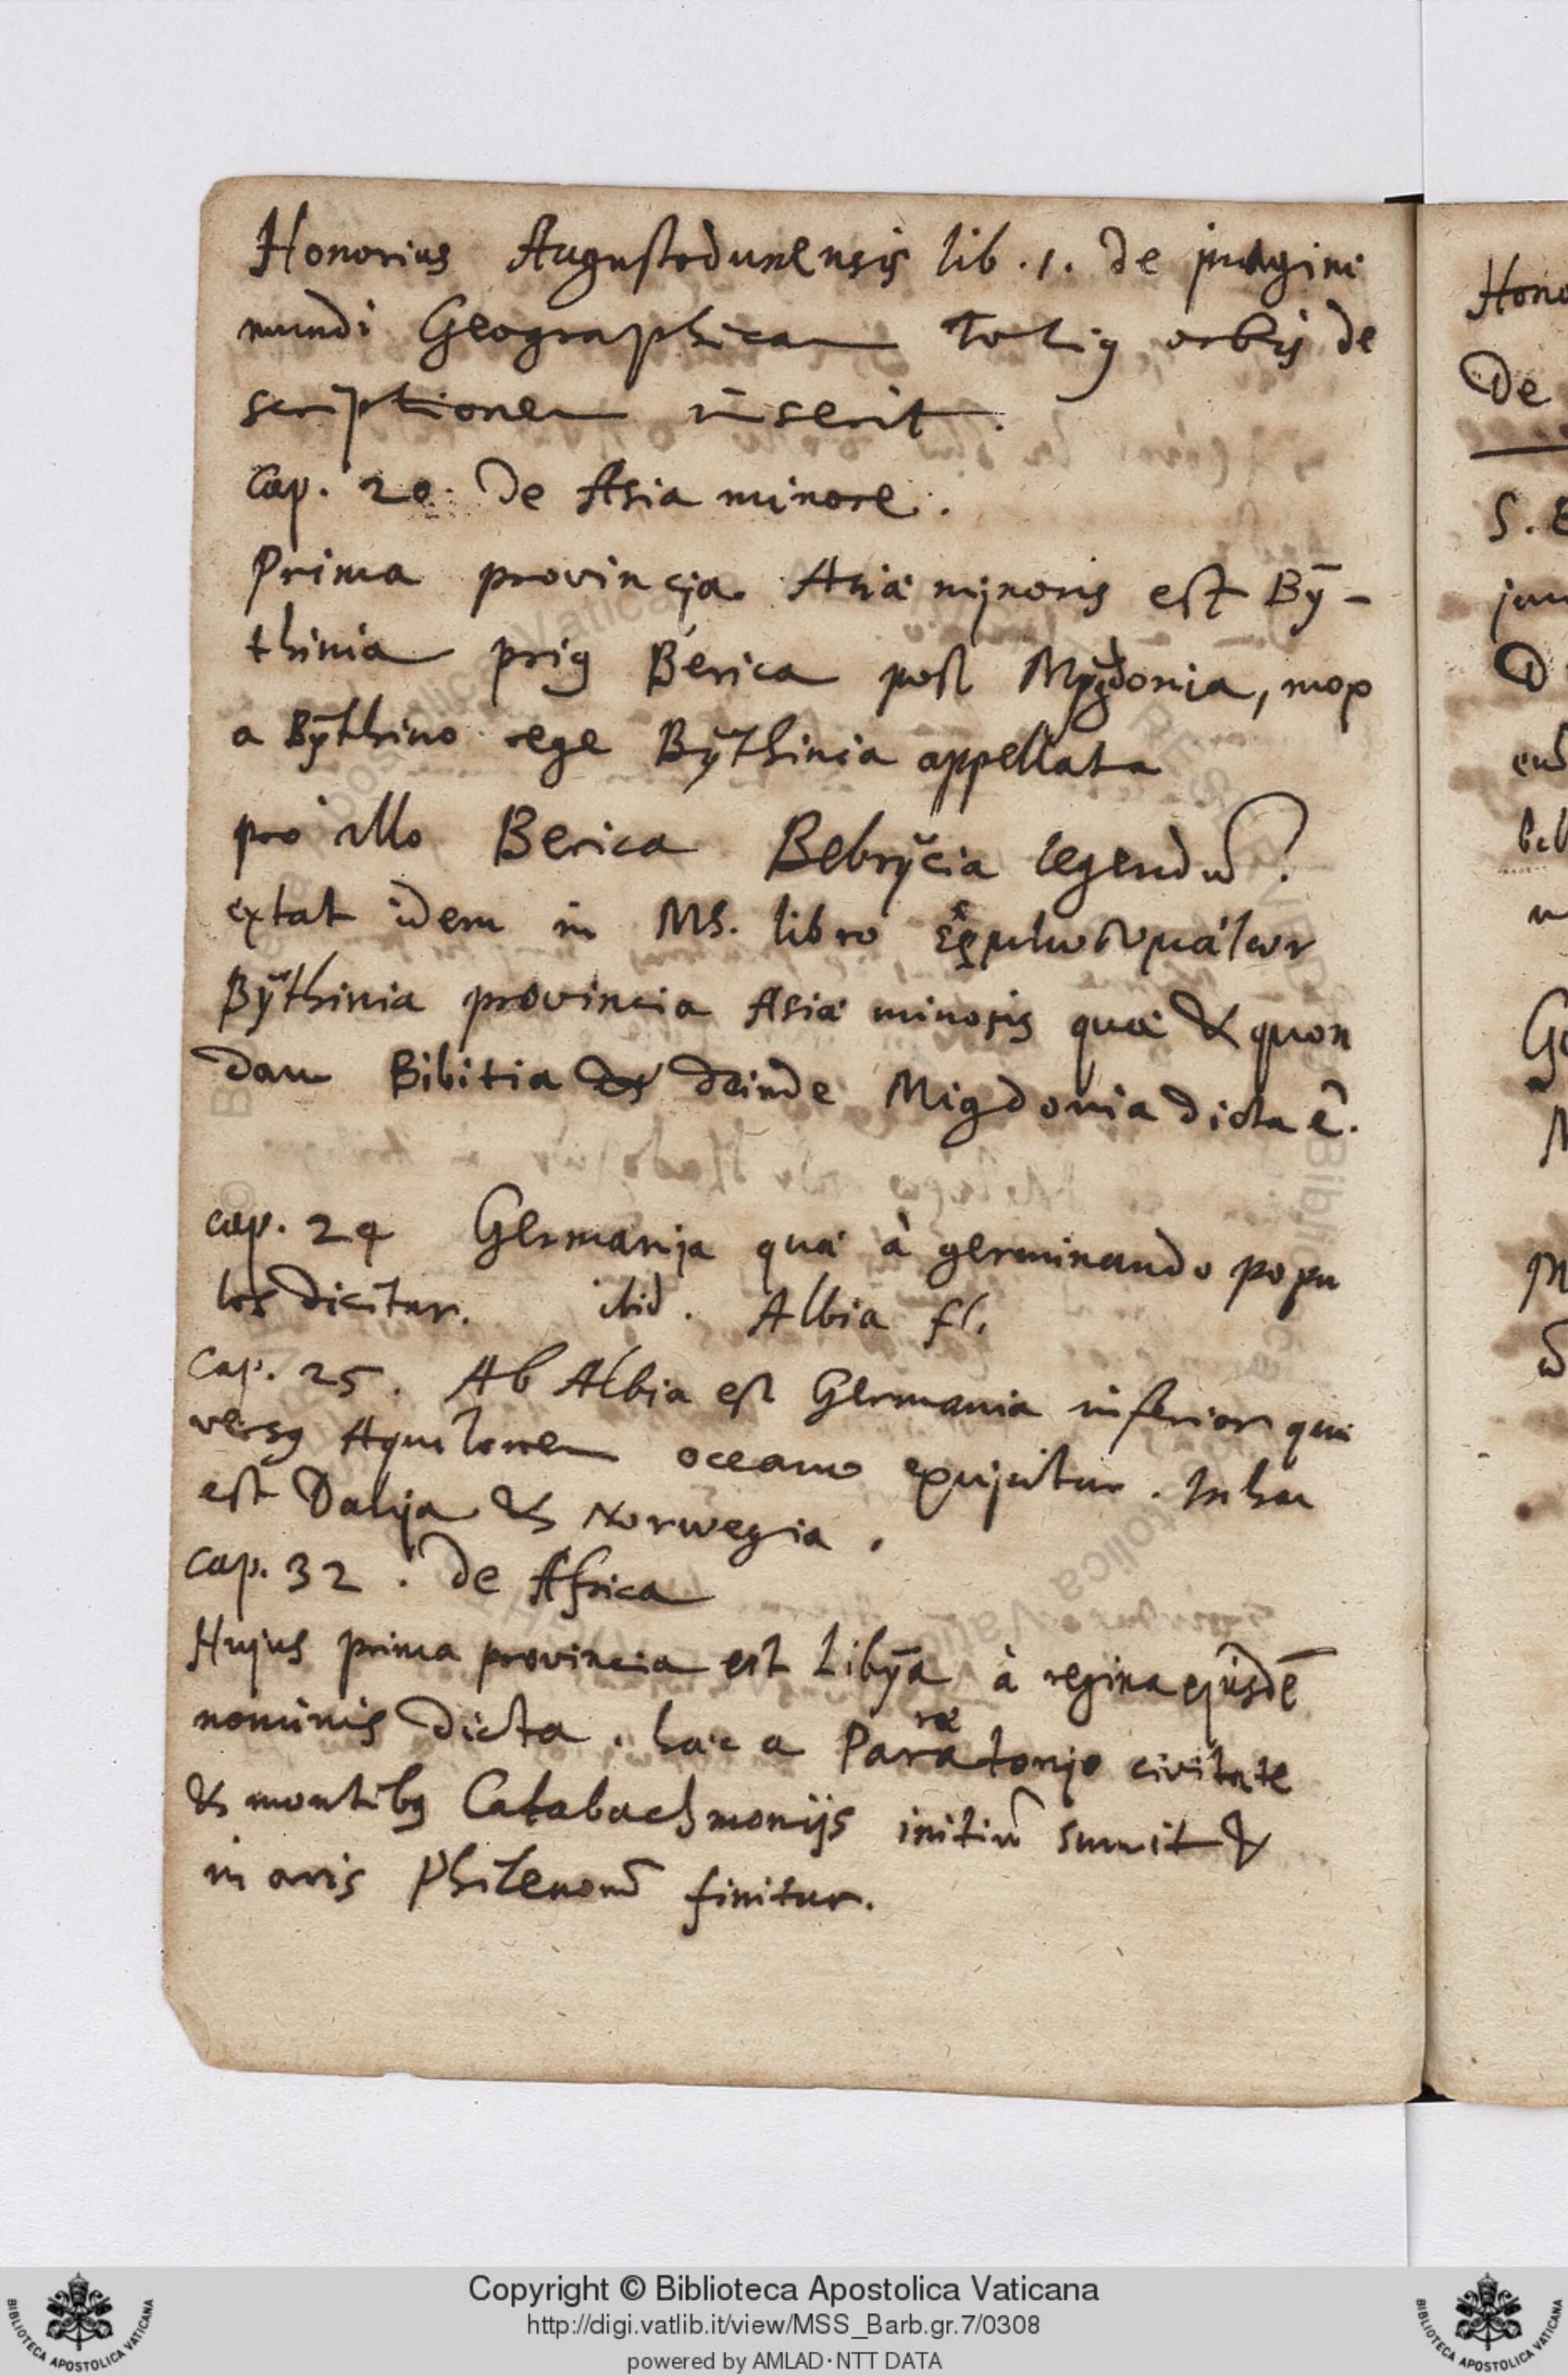 Honorius Augustodunensis lib. 1. de imagine
mundi Geographicam totiꝰ orbis de
scriptionem inserit.
Cap. 20. De Asia minore.
Prima provincia Asiæ minoris est Bÿ-
thinia priꝰ Berica post Mÿgdonia, mox
a Bÿthino rege Bÿthinia appellata
pro illo Berica Bebrÿcia legendū.
extat idem in MS. libro
Bÿthinia provincia Asiæ minoris quæ & quon
dam Bibitia deinde Migdonia dicta ē.
cap. 24 Germania quæ à germinando popu
los dicitur. ibid. Albia fl.
Cap. 25. Ab Albia est Germania inferior quæ
versꝰ Aquilonem oceano excipitur. In hac
est Dania & Norwegia.
cap. 32. De Africa
Hujus prima provincia est Libÿa à regina ejusdē
nominis dicta. hæc a Parætonio civitate
ræ
& montibꝰ Catabachmonijs initiū sumit &
in aris Philenorū finitur.
Hono
De
S. E
D
Copyright © Biblioteca Apostolica Vaticana
http://digi.vatlib.it/view/MSS_Barb.gr.7/0308
powered by AMLAD·NTT DATA
BIBLIOTECA APOSTOLICA VATICANA
BIBLIOTECA APOSTOLICA VATICANA